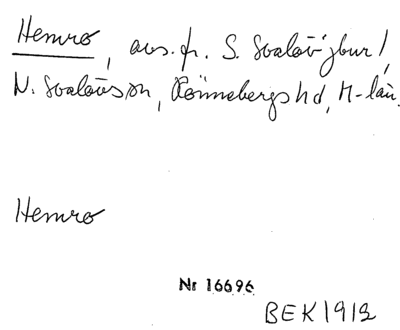 Hemro, avs. fr. S. Svalöv gbur 1,
N. Svalövs sn, Rönnebergs hd, M-län.
Hemro
Nr 16696
BEK 1912